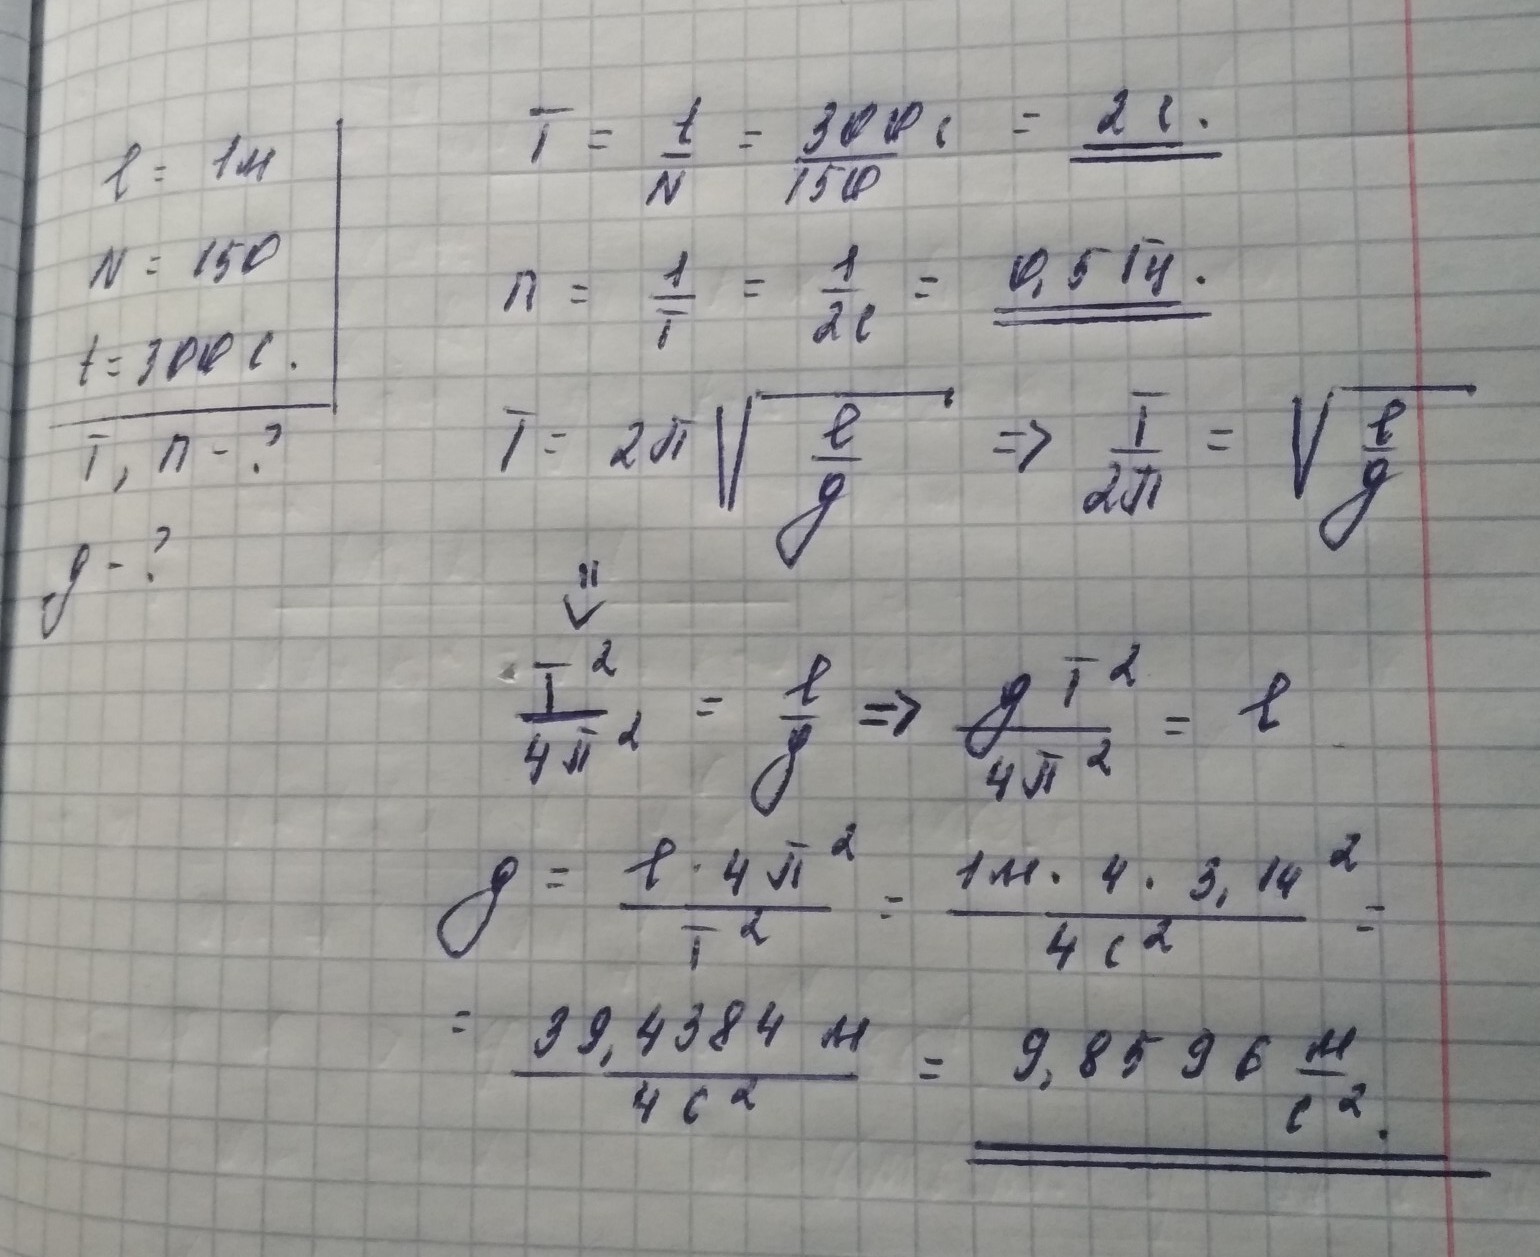 l = 1м
N = 150
t = 300 с.
T, n - ?
g - ?
T = t/N = 300 с/150 = 2 с.
n = 1/T = 1/2с = 0,5 Гц.
T = 2π√(l/g) => T/2π = √(l/g)
=>
T²/4π² = l/g => gT²/4π² = l
g = l · 4π²/T² = 1м · 4 · 3,14²/4 с² =
= 39,4384 м/4 с² = 9,8596 м/с².